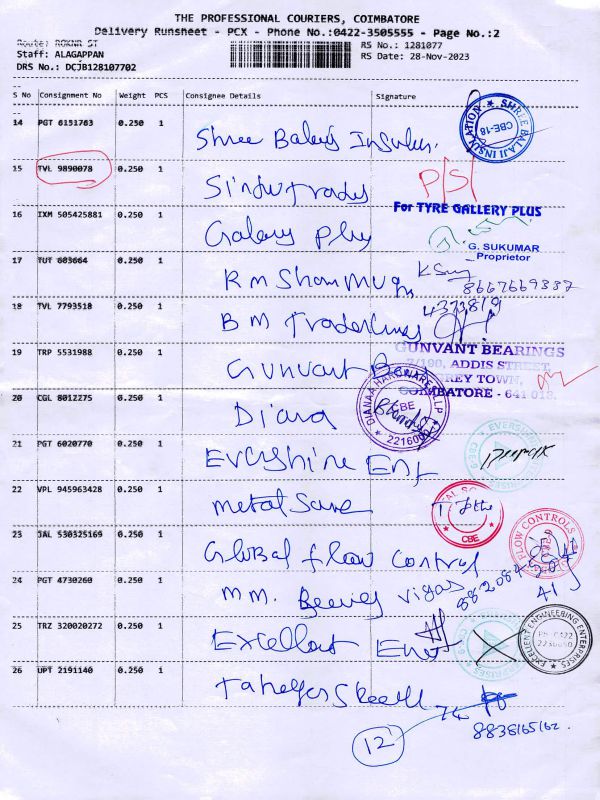 THE PROFESSIONAL COURIERS, COIMBATORE
Delivery Runsheet - PCX - Phone No.:0422-3505555 - Page No.:2
Staff: ALAGAPPAN
RS No.: 1281077
RS Date: 28-Nov-2023
DRS No.: DCJB128107702
S No Consignment No Weight PCS Consignee Details Signature
14 PGT 6151763 0.250 1 Shree Balaji Insuln.
SHREE BALAJI INSULATION CBE-18
15 TVL 9890078 0.250 1 Sindu trades P/S/
16 IXM 505425881 0.250 1 Galaxy Plus
For TYRE GALLERY PLUS
G. SUKUMAR
Proprietor
17 TUT 603664 0.250 1 R m Shanmugm
8667669337
18 TVL 7793518 0.250 1 B M Traderlines
4373819
19 TRP 5531988 0.250 1 Gunvant
GUNVANT BEARINGS
7/190, ADDIS STREET,
GREY TOWN,
COIMBATORE - 641 018.
20 CGL 8012275 0.250 1 Diana
DIANAA HARDWARE LLP
CBE
21 PGT 6020770 0.250 1 Evershine Eng
22 VPL 945963428 0.250 1 metal Sane
CBE
23 JAL 530325169 0.250 1 Global flow Control
FLOW CONTROLS
24 PGT 4730260 0.250 1 mm.
25 TRZ 320020272 0.250 1 Excellent Ent
EXCELLENT ENGINEERING ENTERPRISES
26 UPT 2191140 0.250 1
8838165162.
12